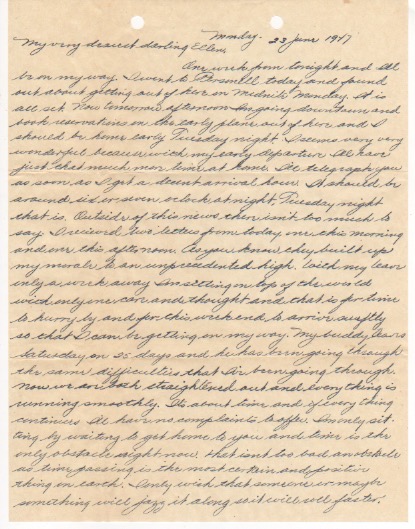 Monday. 23 June 1947
My very dearest darling Ellen,
One week from tonight and Ill
be on my way. I went to Personell today and found
out about getting out of here on Midnite Monday. It is
all set. Now tomorrow afternoon Im going downtown and
book reservations on the early plane out of here and I
should be home early Tuesday night. It seems very very
wonderful because with my early departure Ill have
just that much more time at home. Ill telegraph you
as soon as I get a decent arrival hour. It should be
around six or seven oclock at night. Tuesday night
that is. Outside of this news there isnt too much to
say. I received two letters from today one this morning
and one this afternoon. As you know they built up
my morale to an unprecedented high. With my leave
only a week away Im sitting on top of the world
with only one care and thought and that is for time
to hurry by and for this week end to arrive swiftly
so that I can be getting on my way. My buddy leaves
Saturday on 25 days and he has been going through
the same difficulties that Ive been going through.
Now we are both straightened out and everything is
running smoothly. Its about time and if everything
continues Ill have no complaints to offer. Im only sit-
ting by waiting to get home to you and time is the
only obstacle right now. That isnt too bad an obstacle
as time passing is the most certain and positive
thing on earth. I only wish that someone or maybe
something will jazz it along so it will roll faster.